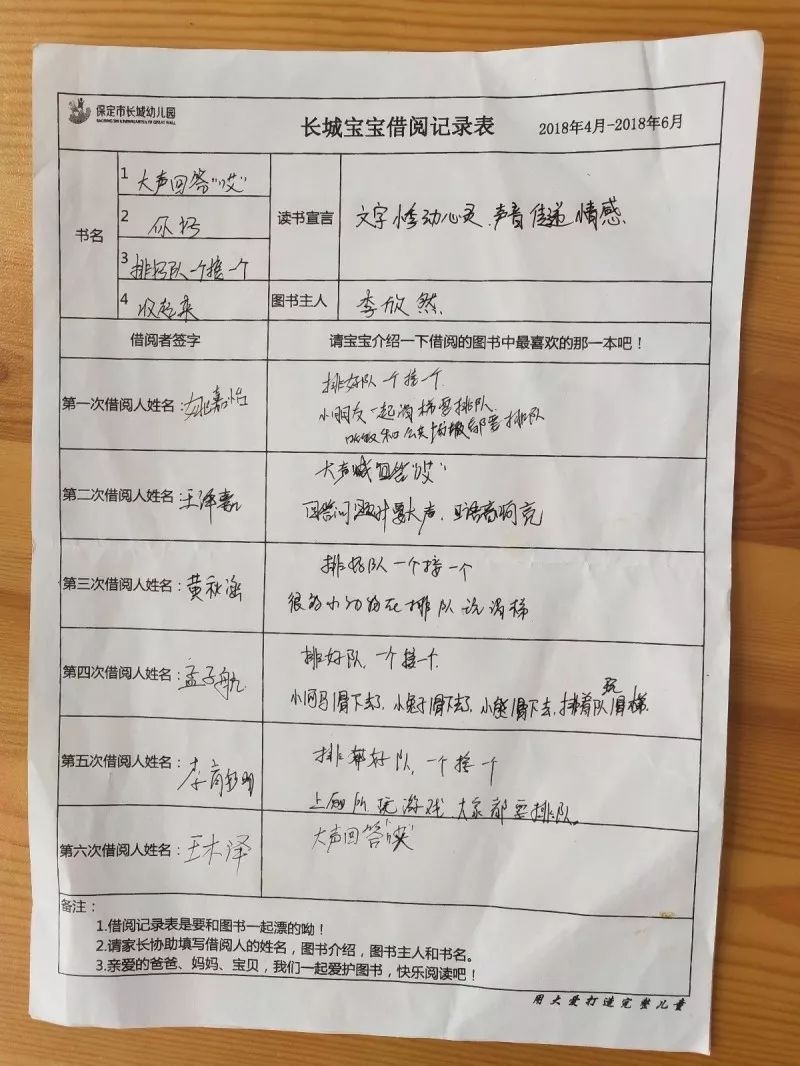 保定市长城幼儿园
长城宝宝借阅记录表
2018年4月-2018年6月
书名
1 大声回答"哎"
2 你好
3 排好队一个接一个
4 收起来
读书宣言
文字悸动心灵、声音传递情感
图书主人
李欣然
借阅者签字
请宝宝介绍一下借阅的图书中最喜欢的那一本吧！
第一次借阅人姓名：姚嘉怡
排好队一个接一个
小朋友一起滑梯要排队
和公共场都要排队
第二次借阅人姓名：王泽嘉
大声喊回答"哎"
回答问题时要大声，且语音响亮
第三次借阅人姓名：黄秋涵
排好队一个接一个
很多小动物在排队玩滑梯
第四次借阅人姓名：孟子航
排好队，一个接一个
小河马滑下去了，小兔子滑下去了，小熊滑下去，排着队玩滑梯
第五次借阅人姓名：李
排帮好队，一个接一个
上厕所玩游戏大家都要排队。
第六次借阅人姓名：王木泽
大声回答"唉"
备注：
1.借阅记录表是要和图书一起漂的呦！
2.请家长协助填写借阅人的姓名，图书介绍，图书主人和书名。
3.亲爱的爸爸、妈妈、宝贝，我们一起爱护图书，快乐阅读吧！
用大爱打造完整儿童